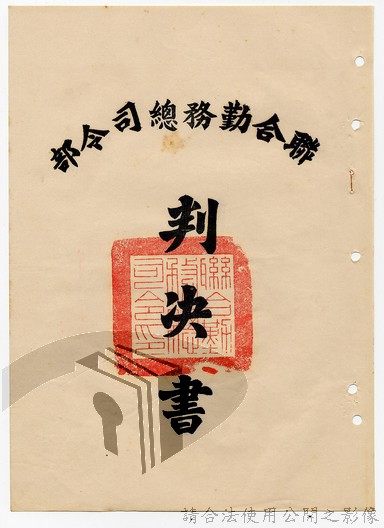 聯合勤務總司令部
判決書
聯合勤務總司令印
請合法使用公開之影像